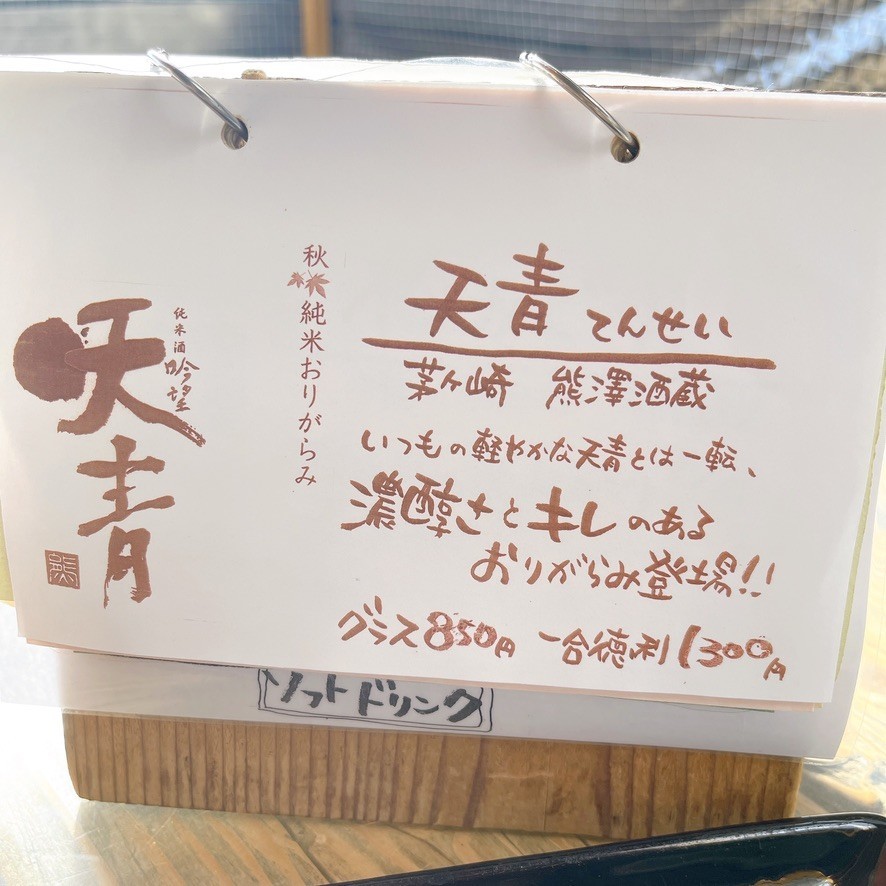 天青 てんせい
茅ヶ崎 熊澤酒蔵
いつもの軽やかな天青とは一転、
濃醇さとキレのある
おりがらみ登場!!
グラス850円 一合徳利1300円
秋 純米おりがらみ
純米酒
吟望
天青
熊
ソフトドリンク